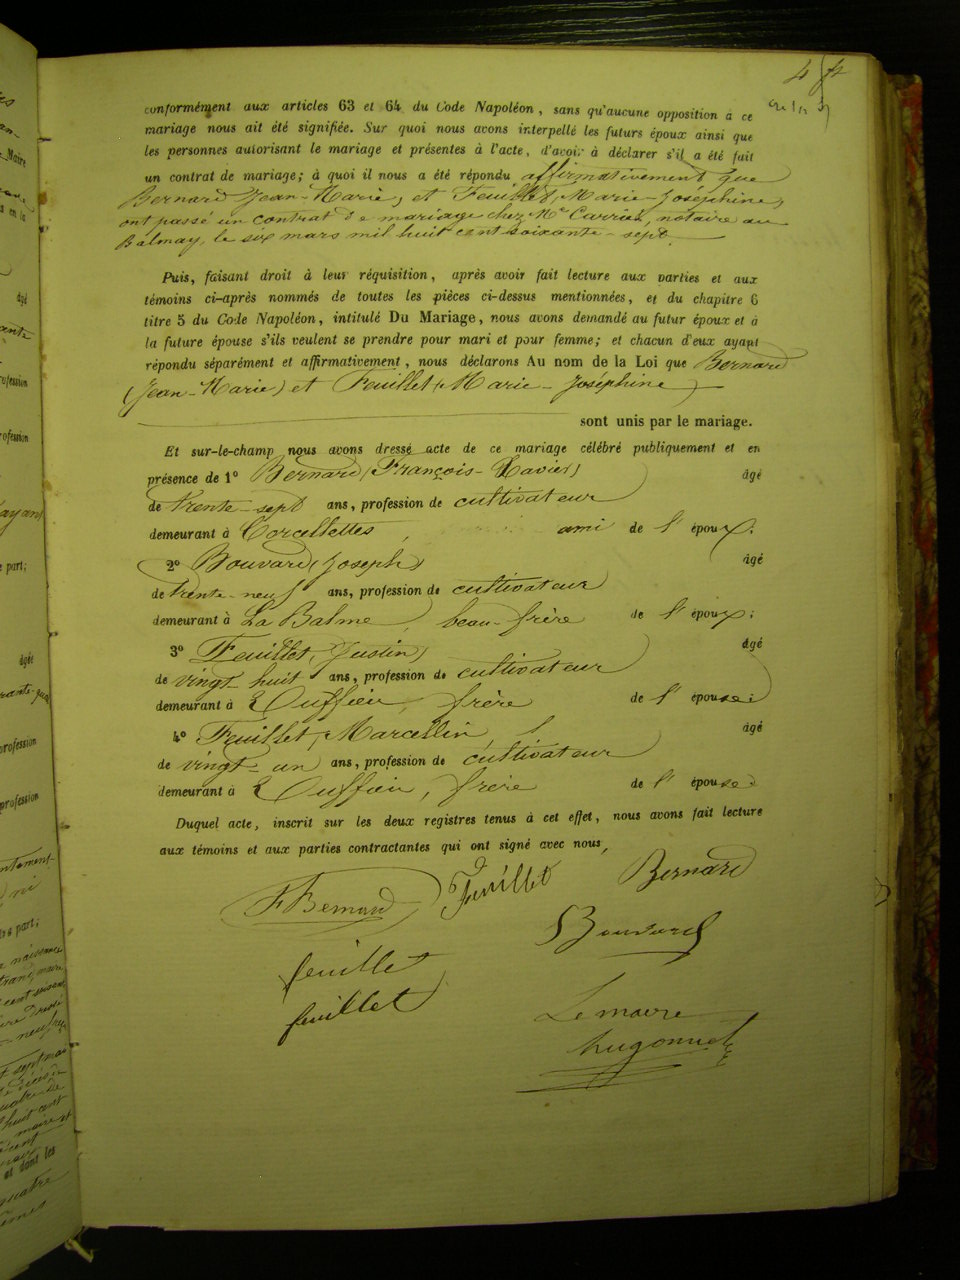 conformément aux articles 63 et 64 du Code Napoléon, sans qu'aucune opposition à ce
mariage nous ait été signifiée. Sur quoi nous avons interpellé les futurs époux ainsi que
les personnes autorisant le mariage et présentes à l'acte, d'avoir à déclarer s'il a été fait
un contrat de mariage; à quoi il nous a été répondu affirmativement que
Bernard Jean-Marie, et Feuillet, Marie-Joséphine,
ont passé un contrat de mariage chez Me notaire au
Balmay, le six mars mil huit cent soixante-sept.
Puis, faisant droit à leur réquisition, après avoir fait lecture aux parties et aux
témoins ci-après nommés de toutes les pièces ci-dessus mentionnées, et du chapitre 6
titre 5 du Code Napoléon, intitulé Du Mariage, nous avons demandé au futur époux et à
la future épouse s'ils veulent se prendre pour mari et pour femme; et chacun d'eux ayant
répondu séparément et affirmativement, nous déclarons Au nom de la Loi que Bernard
(Jean-Marie) et Feuillet, Marie-Joséphine
sont unis par le mariage.
Et sur-le-champ nous avons dressé acte de ce mariage célébré publiquement et en
présence de 1º Bernard (François-Xavier) âgé
de trente-sept ans, profession de cultivateur
demeurant à Corcellettes, ami de l'époux.
2º Bouvard (Joseph) âgé
de trente-neuf ans, profession de cultivateur
demeurant à La Balme, beau-frère de l'époux;
3º Feuillet, (Justin) âgé
de vingt-huit ans, profession de cultivateur
demeurant à Ouffieu, frère de l'épouse;
4º Feuillet, Marcellin, âgé
de vingt-un ans, profession de cultivateur
demeurant à Ouffieu, frère de l'épouse.
Duquel acte, inscrit sur les deux registres tenus à cet effet, nous avons fait lecture
aux témoins et aux parties contractantes qui ont signé avec nous,
F Bernard Feuillet Bernard
J Bouvard
feuillet
feuillet
Le maire
hugonnet